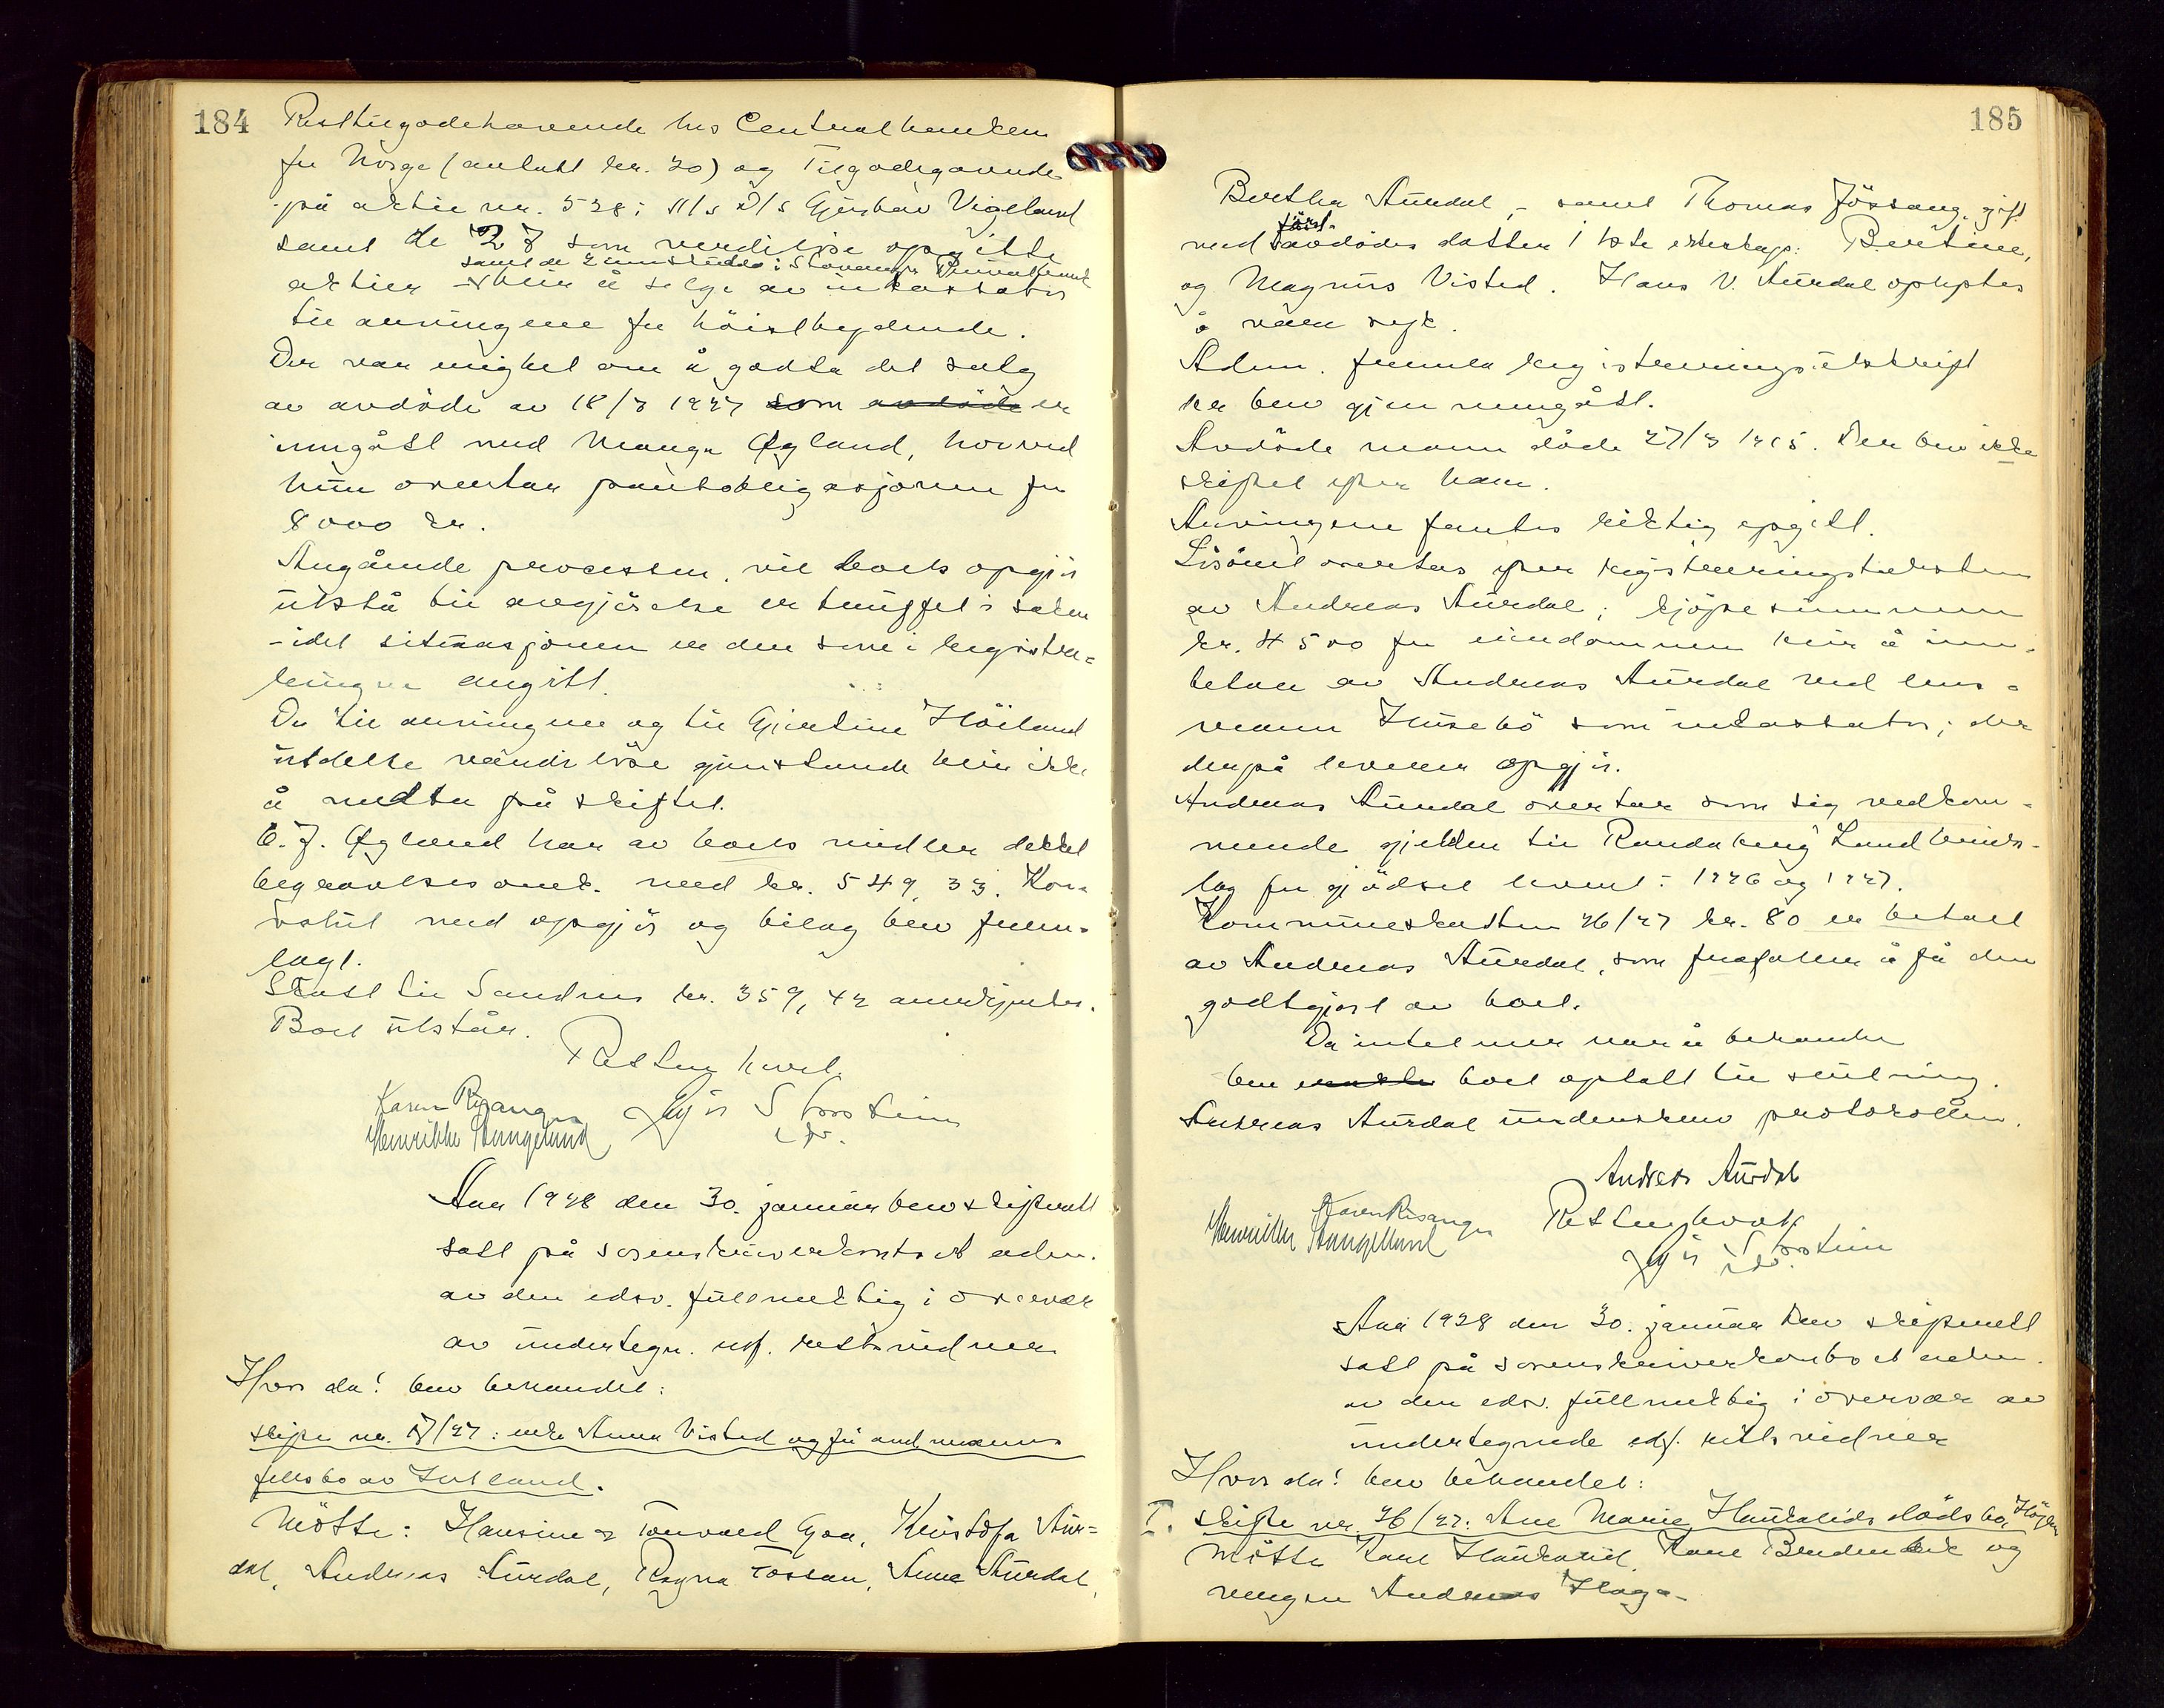 184
Resttilgodehavende hos Centralbanken
for Norge (antatt kr. 20) og Tilgodehavende
på aktie nr. 528 i A/s D/s Gustav Vigeland
samt de 28 som verdiløse opgitte
samt de 2 innskudd i Stavanger Privatbank
aktier blir å selge av inkassator
til arvingene for høistbydende.
Der var enighet om å godta det salg
av avdöde av 18/3 1927 som avdöde er
inngått med Manga Øgland, hvorved
hun overtar pantobligasjonen for
8000 kr.
Angående processen, vil boets opgjör
utstå til avgjörelse er truffet i saken
- idet situasjonen er den som i registre=
ringen angitt.
De til arvingene og til Gjertine Höiland
utdelte verdilöse gjenstande blir ikke
å medta på skiftet.
C. J. Øgland har av boets midler dekket
begravelsesomk. med kr. 549,33. Kon-
volut med opgjör og bilag blev frem-
lagt.
Skatt til Sandnes kr. 359,42 anerkjentes.
Boet utstår.
Retten hevet.
Karen Risanger
Henrikke Stangeland
Aar 1928 den 30. januar blev skifterett
satt på sorenskriverkontoret adm.
av den edsv. fullmektig i overvær
av undertegn. edf. rettsvidner
Hvor da! blev behandlet:
skifte nr. 17/27: enke Anna Visted og før avd. manns
fellesbo av Jutland.
Mötte: Hansine og Torvald Goa, Kristofa Aur=
dal, Andreas Aurdal, Ragna Tossan, Anna Aurdal,
185
Bertha Aurdal, - samt Thomas Jössang, gift
först-
med avdödes datter i 1ste ekteskap: Bertine,
og Magnus Visted. Hans V. Aurdal oplystes
å være syk.
Adm. fremla registreringsutskrift
der blev gjennemgått.
Avdöde mann döde 27/3 1915. Der blev ikke
skiftet efter ham.
Arvingene fantes riktig opgitt.
Lösöret overtas efter registreringstaksten
av Andreas Aurdal; kjöpesummen
kr. 4500 for eiendommen blir å inn-
betale av Andreas Aurdal ved lens-
mann Husebö som inkassator; der
derpå leverer opgjör.
Andreas Aurdal overtar som sig vedkom-
mende gjelden til Randaberg Landbruks-
lag for gjödsel levert i 1926 og 1927.
Kommuneskatten 26/27 kr. 80 er betalt
av Andreas Aurdal, som frafaller å få den
godtgjort av boet.
Da intet mer var å behandle
blev boet optatt til slutning.
Andreas Aurdal underskrev protokollen.
Andreas Aurdal
Karen Risanger
Henrikke Stangeland
Retten hevet
Aar 1928 den 30. januar blev skifterett
satt på sorenskriverkontoret adm.
av den edsv. fullmektig i overvær av
undertegnede edf. rettsvidner
Hvor da! blev behandlet:
I. skifte nr. 26/27: Ane Marie Haukalids dödsbo,
Mötte Karl Haukalid, og
vergen Andreas Haga-